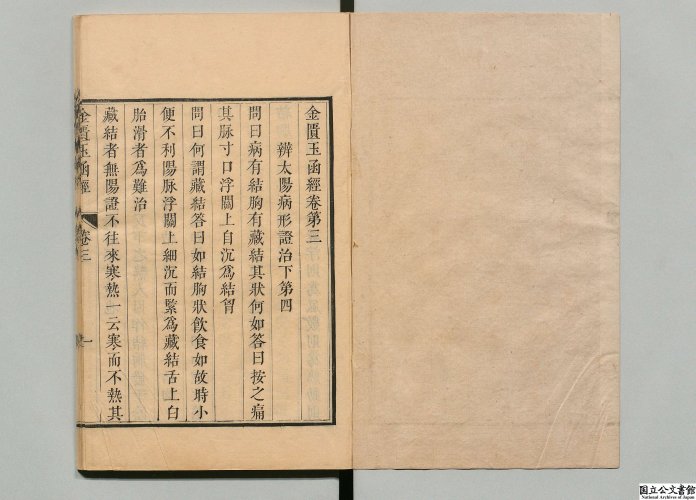 金匱玉函經卷第三
辨太陽病形證治下第四
問曰病有結胸有藏結其狀何如答曰按之痛
其脉寸口浮關上自沉為結胷
問曰何謂藏結答曰如結胸狀飲食如故時小
便不利陽脉浮關上細沉而緊為藏結舌上白
胎滑者為難治
藏結者無陽證不往來寒熱一云寒而不熱其
金匱玉函經 卷三 一
国立公文書館
National Archives of Japan